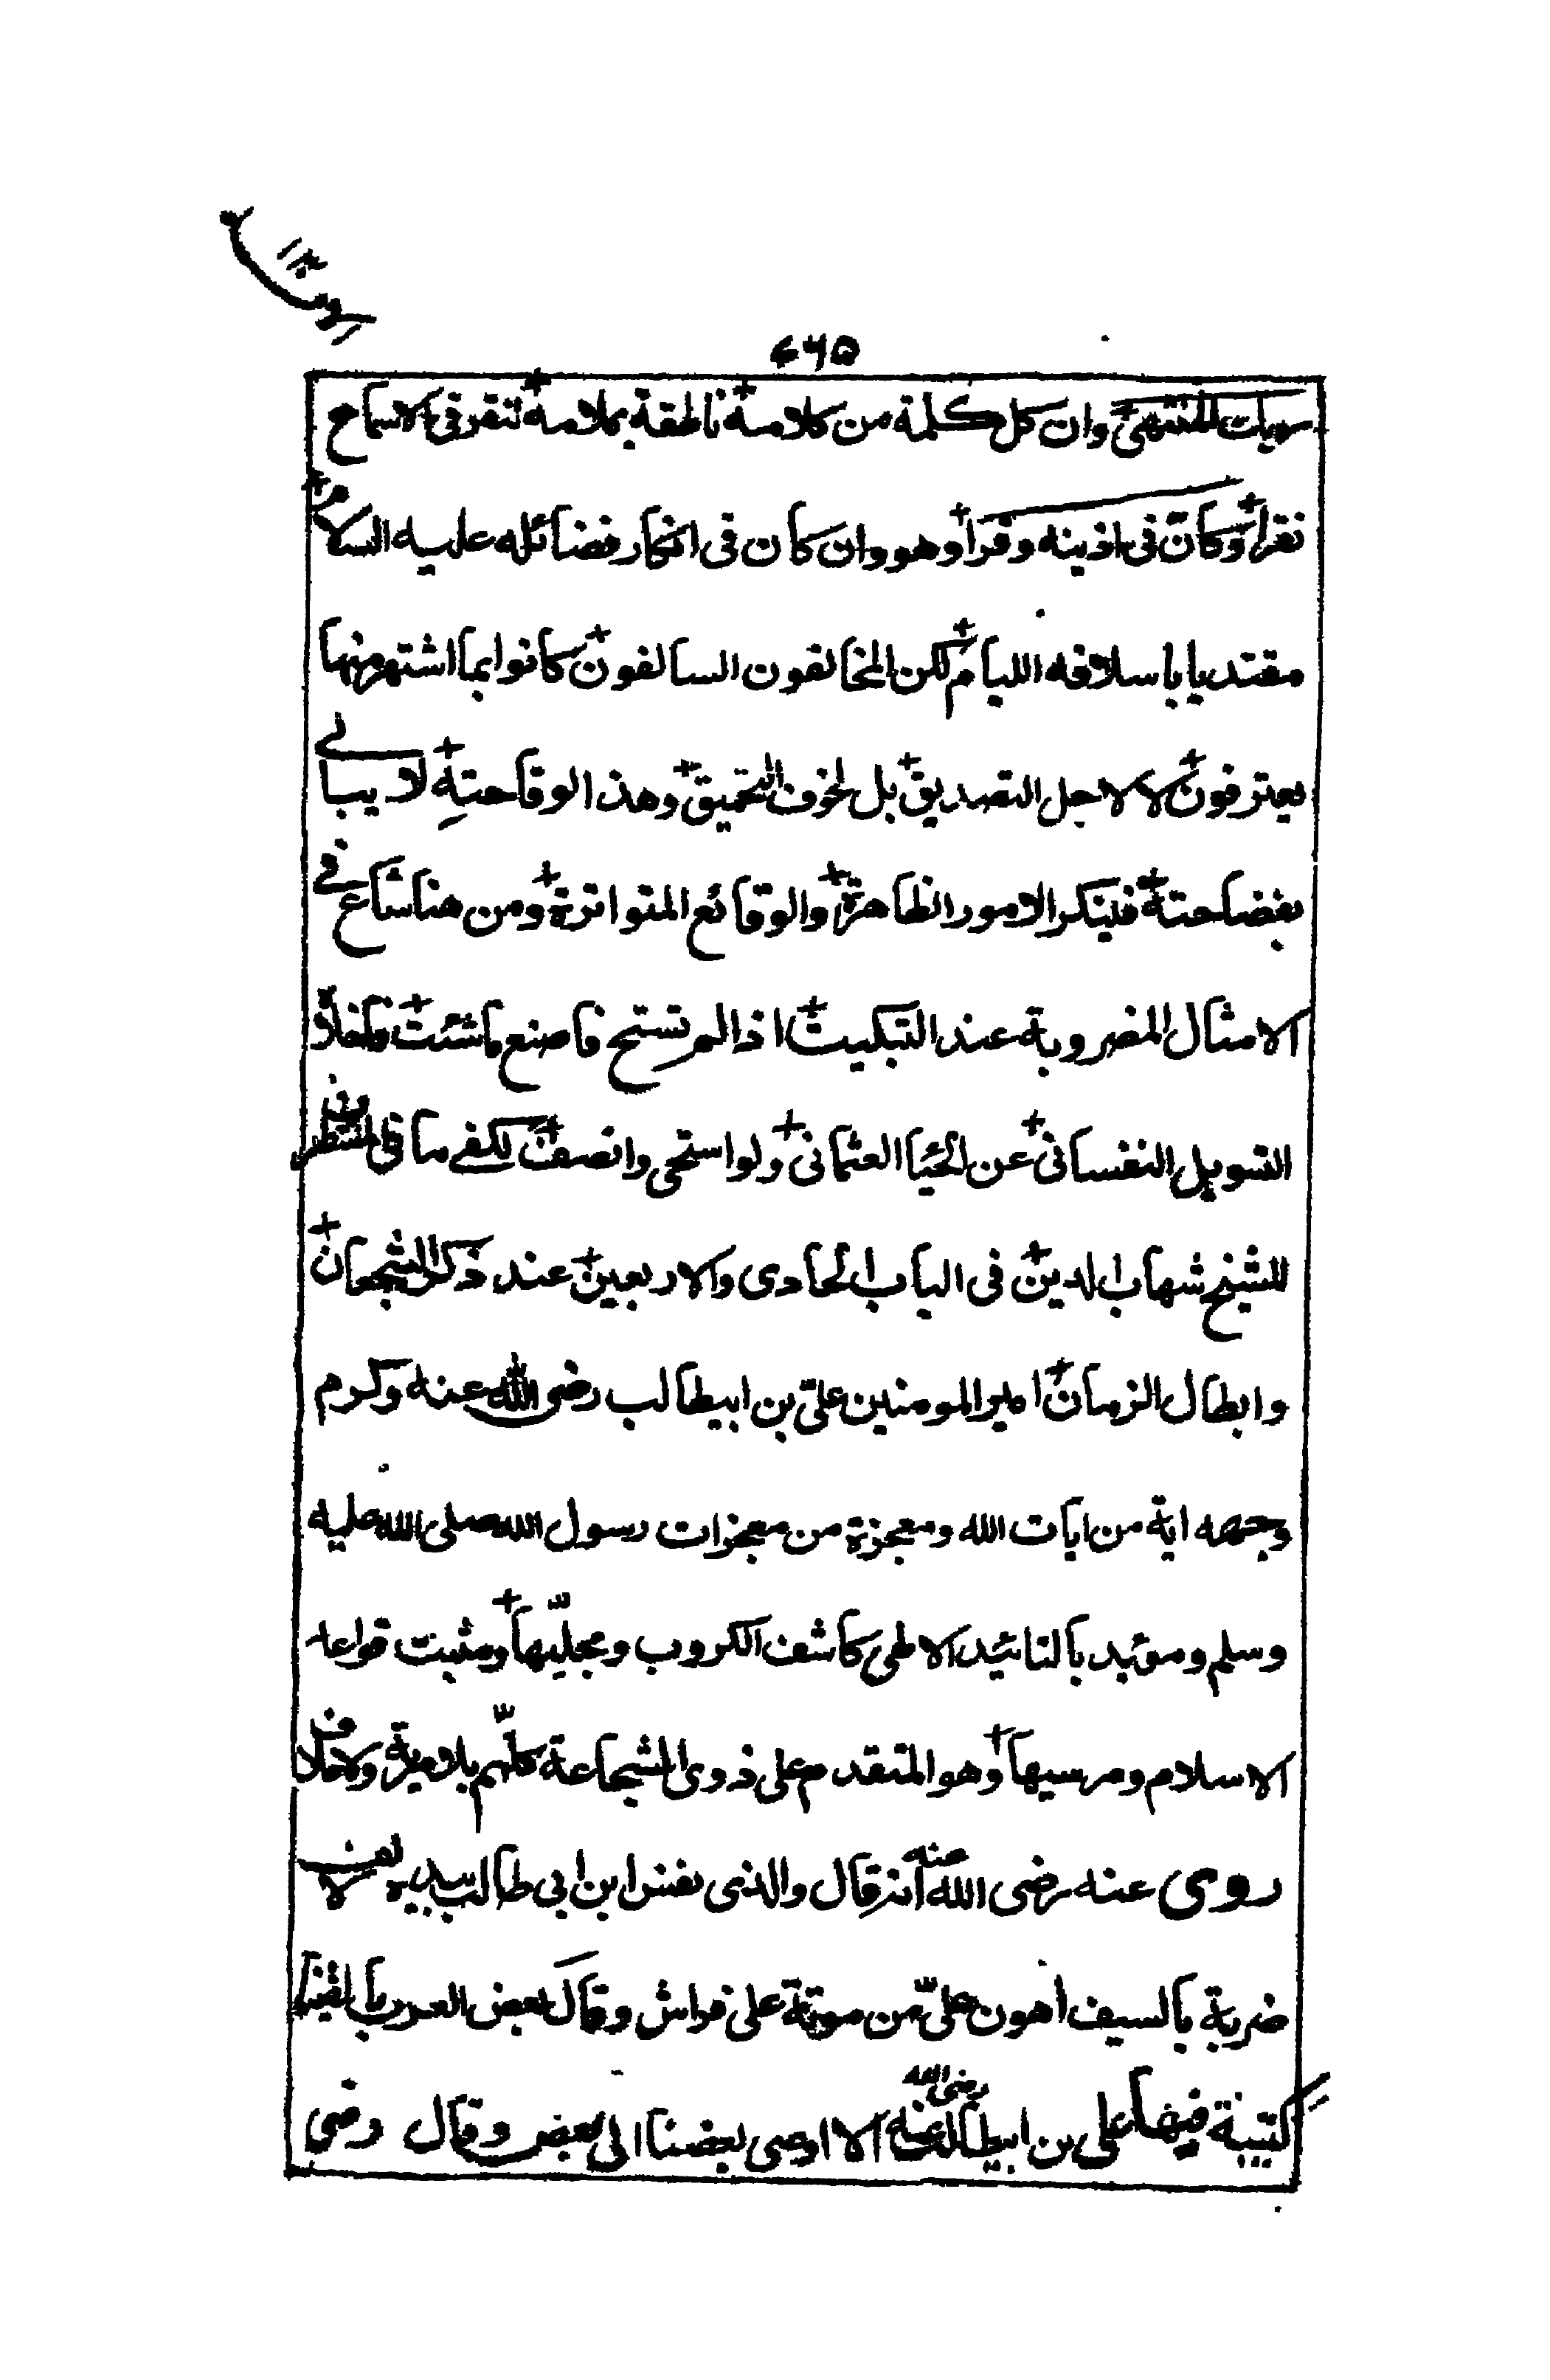 ۶۶۵
للمنتهى وان كل كلمة من كلامه ناطقة بملامه تنقر فى الاسماع
نقرا وكان فى اذينه وقرا وهو وان كان فى انكار فضائله عليه السلام
مقتديا باسلافه الليام لكن المخالفون السالفون كانوا بما اشتهر منها
يعترفون لا لاجل التصديق بل لخوف التحميق وهذا لوقاحته لا يبالى
بفضاحته فينكر الامور الظاهرة والوقائع المتواترة ومن هنا شاع فى
الامثال المضروبة عند التبكيت اذا لم تستح فاصنع ما شئت
التسويل النفسانى عن الحيا العثمانى ولو استحى وانصف لكفى ما فى المستطرف
للشيخ شهاب الدين فى الباب الحادى والاربعين عند ذكر الشجعان
وابطال الزمان امير المومنين علىّ بن ابيطالب رضى الله عنه وكرم
وجهه اية من ايات الله ومعجزة من معجزات رسول الله صلى الله عليه
وسلم ومؤيد بالتائيد الالهى كاشف الكروب ومجلّيها ومثبت قواعد
الاسلام ومرسيها وهو المتقدم على ذوى الشجاعة كلّهم بلا مرية ولا خلاف
روى عنه رضى الله عنه انه قال والذى نفس ابن ابى طالب بيده لالف
ضربة بالسيف أهون علىّ من موتة على فراش وقال بعض العرب ما لقينا
كتيبة فيها على بن ابيطالب رضى الله عنه الا اوصى بعضنا الى بعض وقال رضى